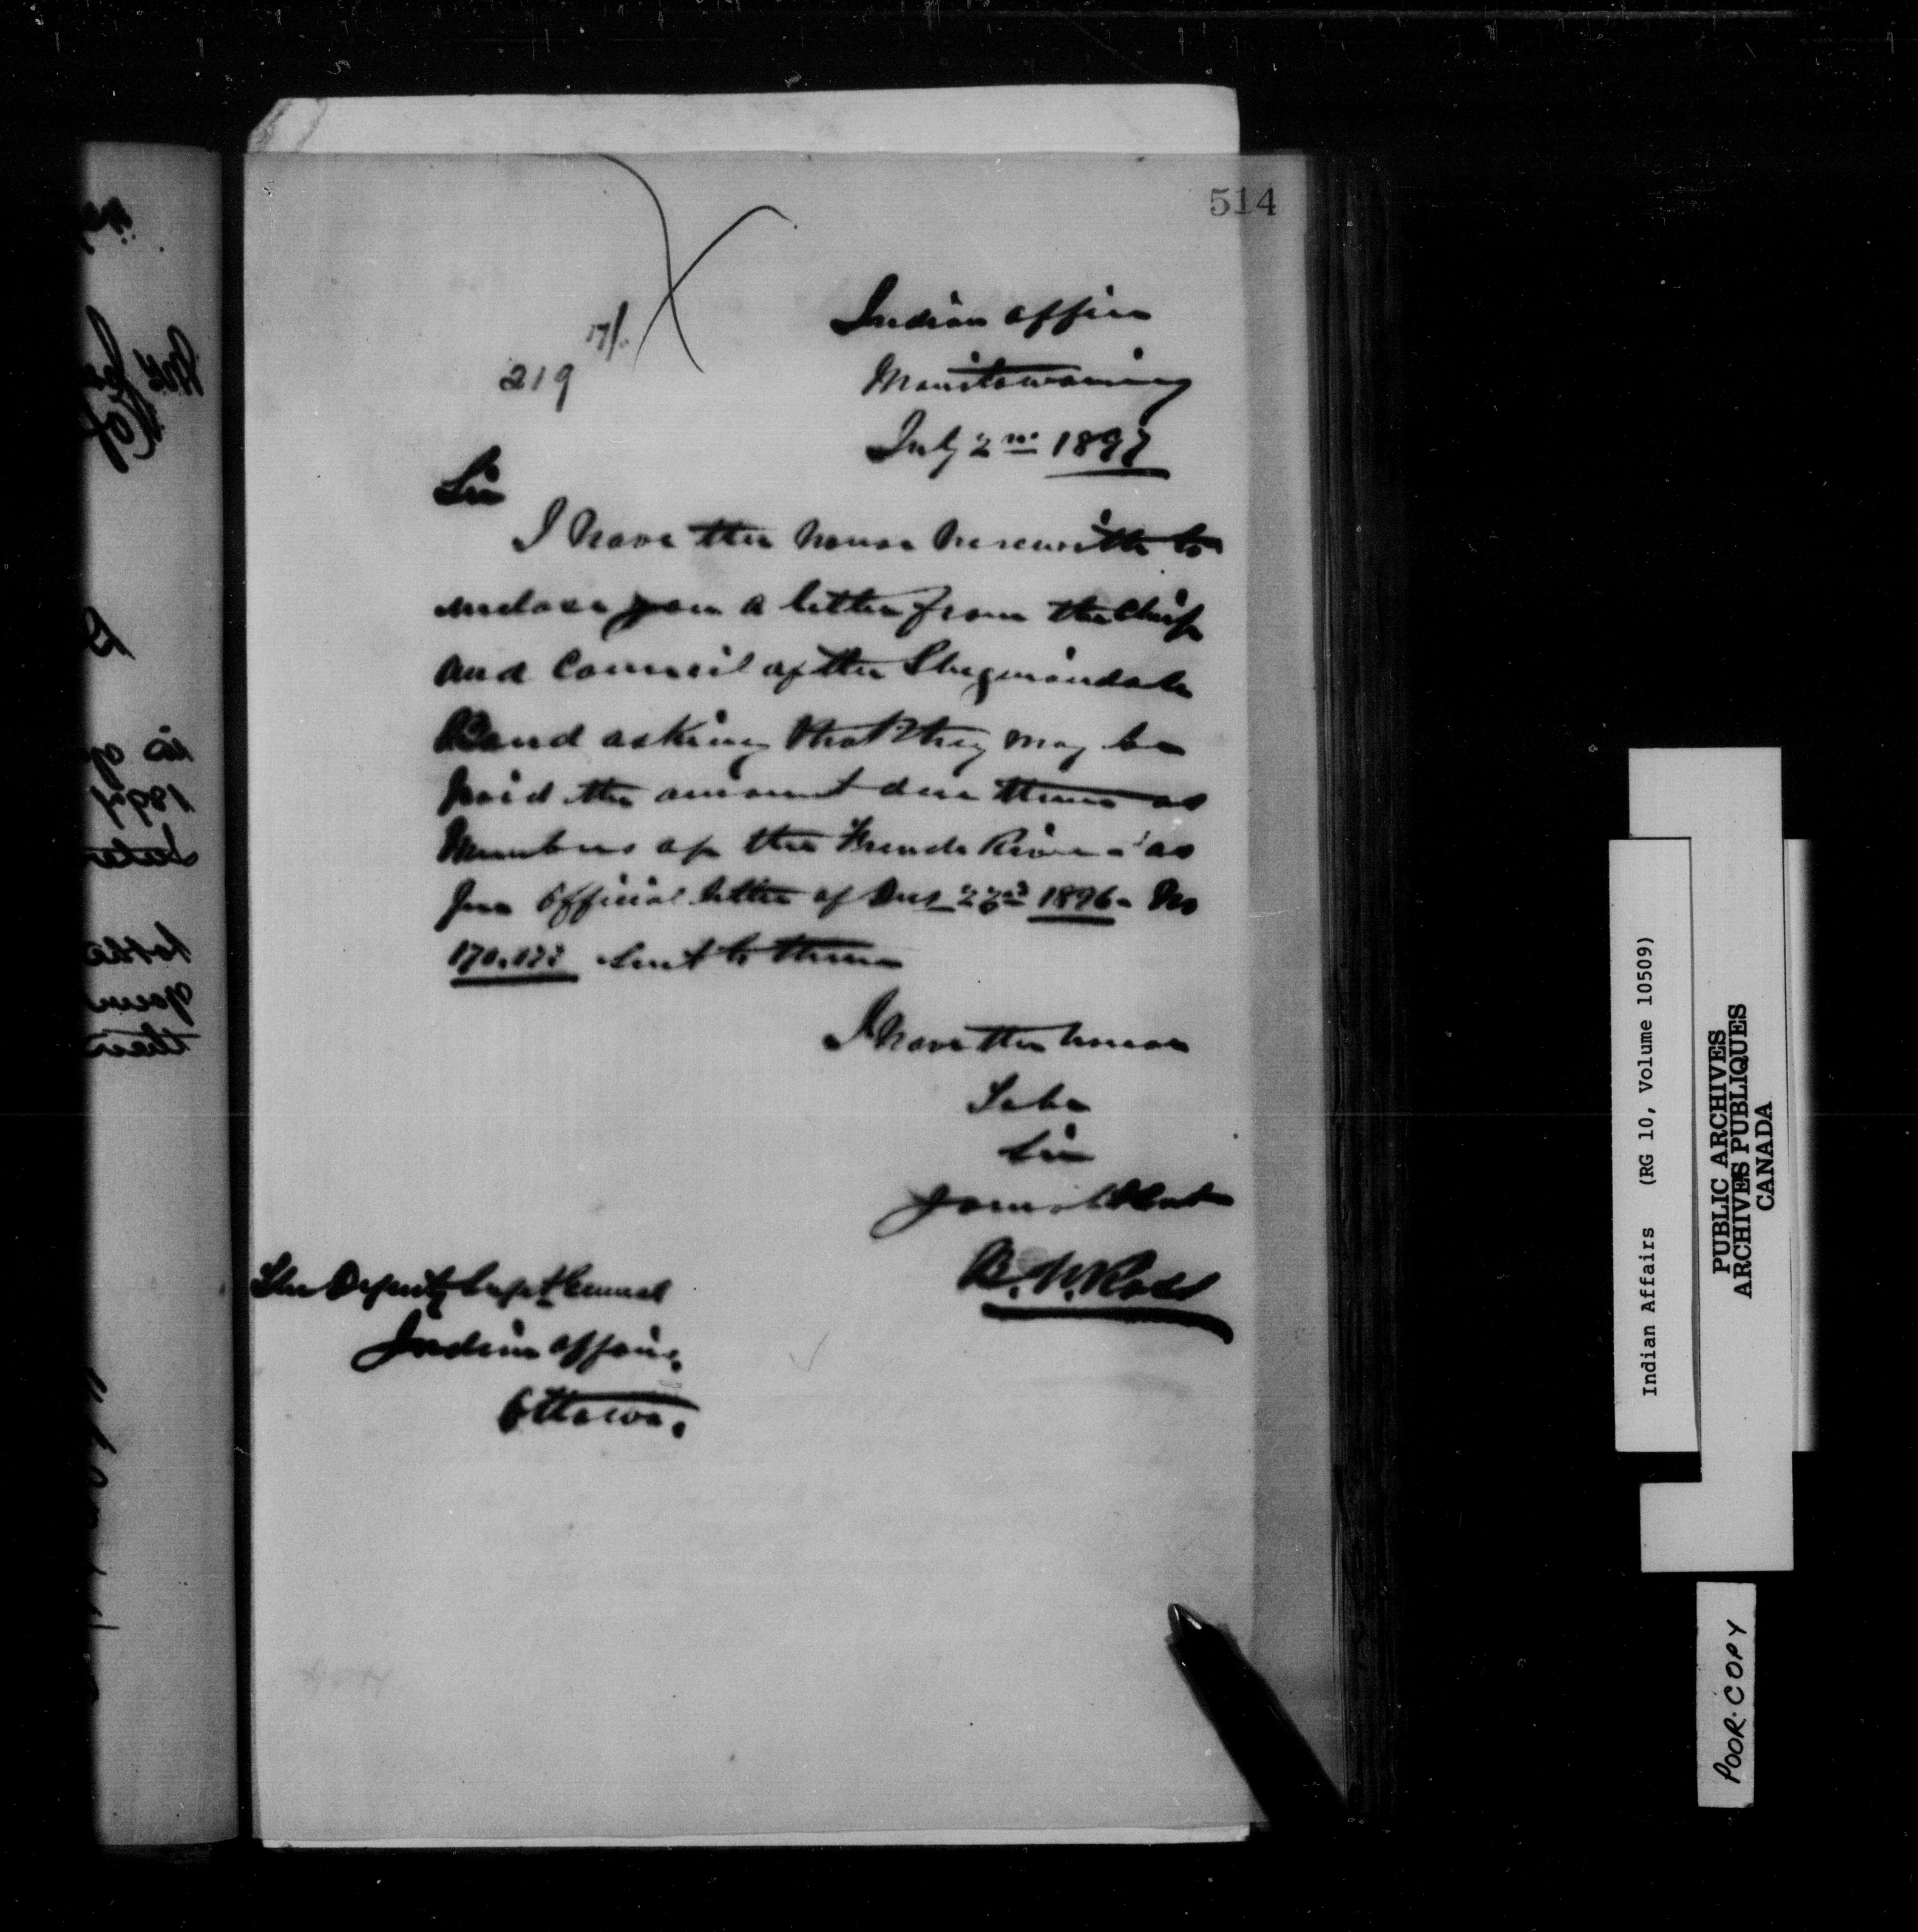 514
Indian Office
219 17/
Manitowaning
July 2nd 1897
Sir
I have the honor herewith to
enclose you a letter from the Chief
and Council of the Sheguiandah
Band asking that they may be
paid the amount due them as
Members of the French River - as
per Official letter of Dec 23rd 1896 - No
sent to them
I have the honor
To be
Sir
Your obt Servt
B. W. Ross
The Deputy Supt General
Indian Affairs
Ottawa.
Indian Affairs (RG 10, Volume 10509)
PUBLIC ARCHIVES
ARCHIVES PUBLIQUES
CANADA
POOR COPY